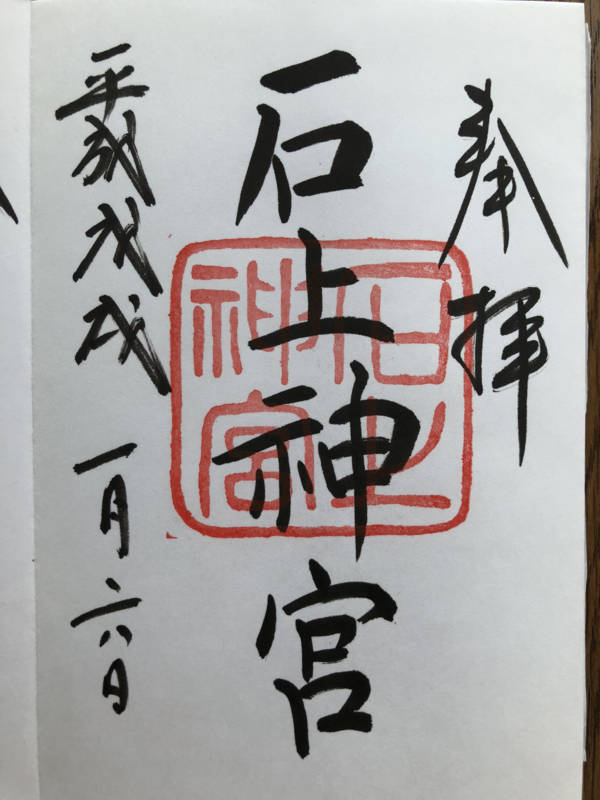 奉拝
石上神宮
石上
神宮
平成戊戌 一月六日